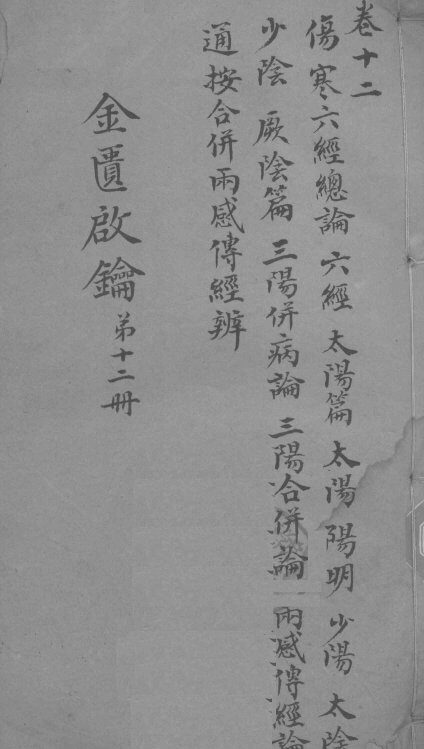 卷十二
傷寒六經總論 六經 太陽篇 太陽 陽明 少陽 太陰
少陰 厥陰篇 三陽併病論 三陽合併論 兩感傳經論
通按合併兩感傳經辨
金匱啟鑰 第十二冊